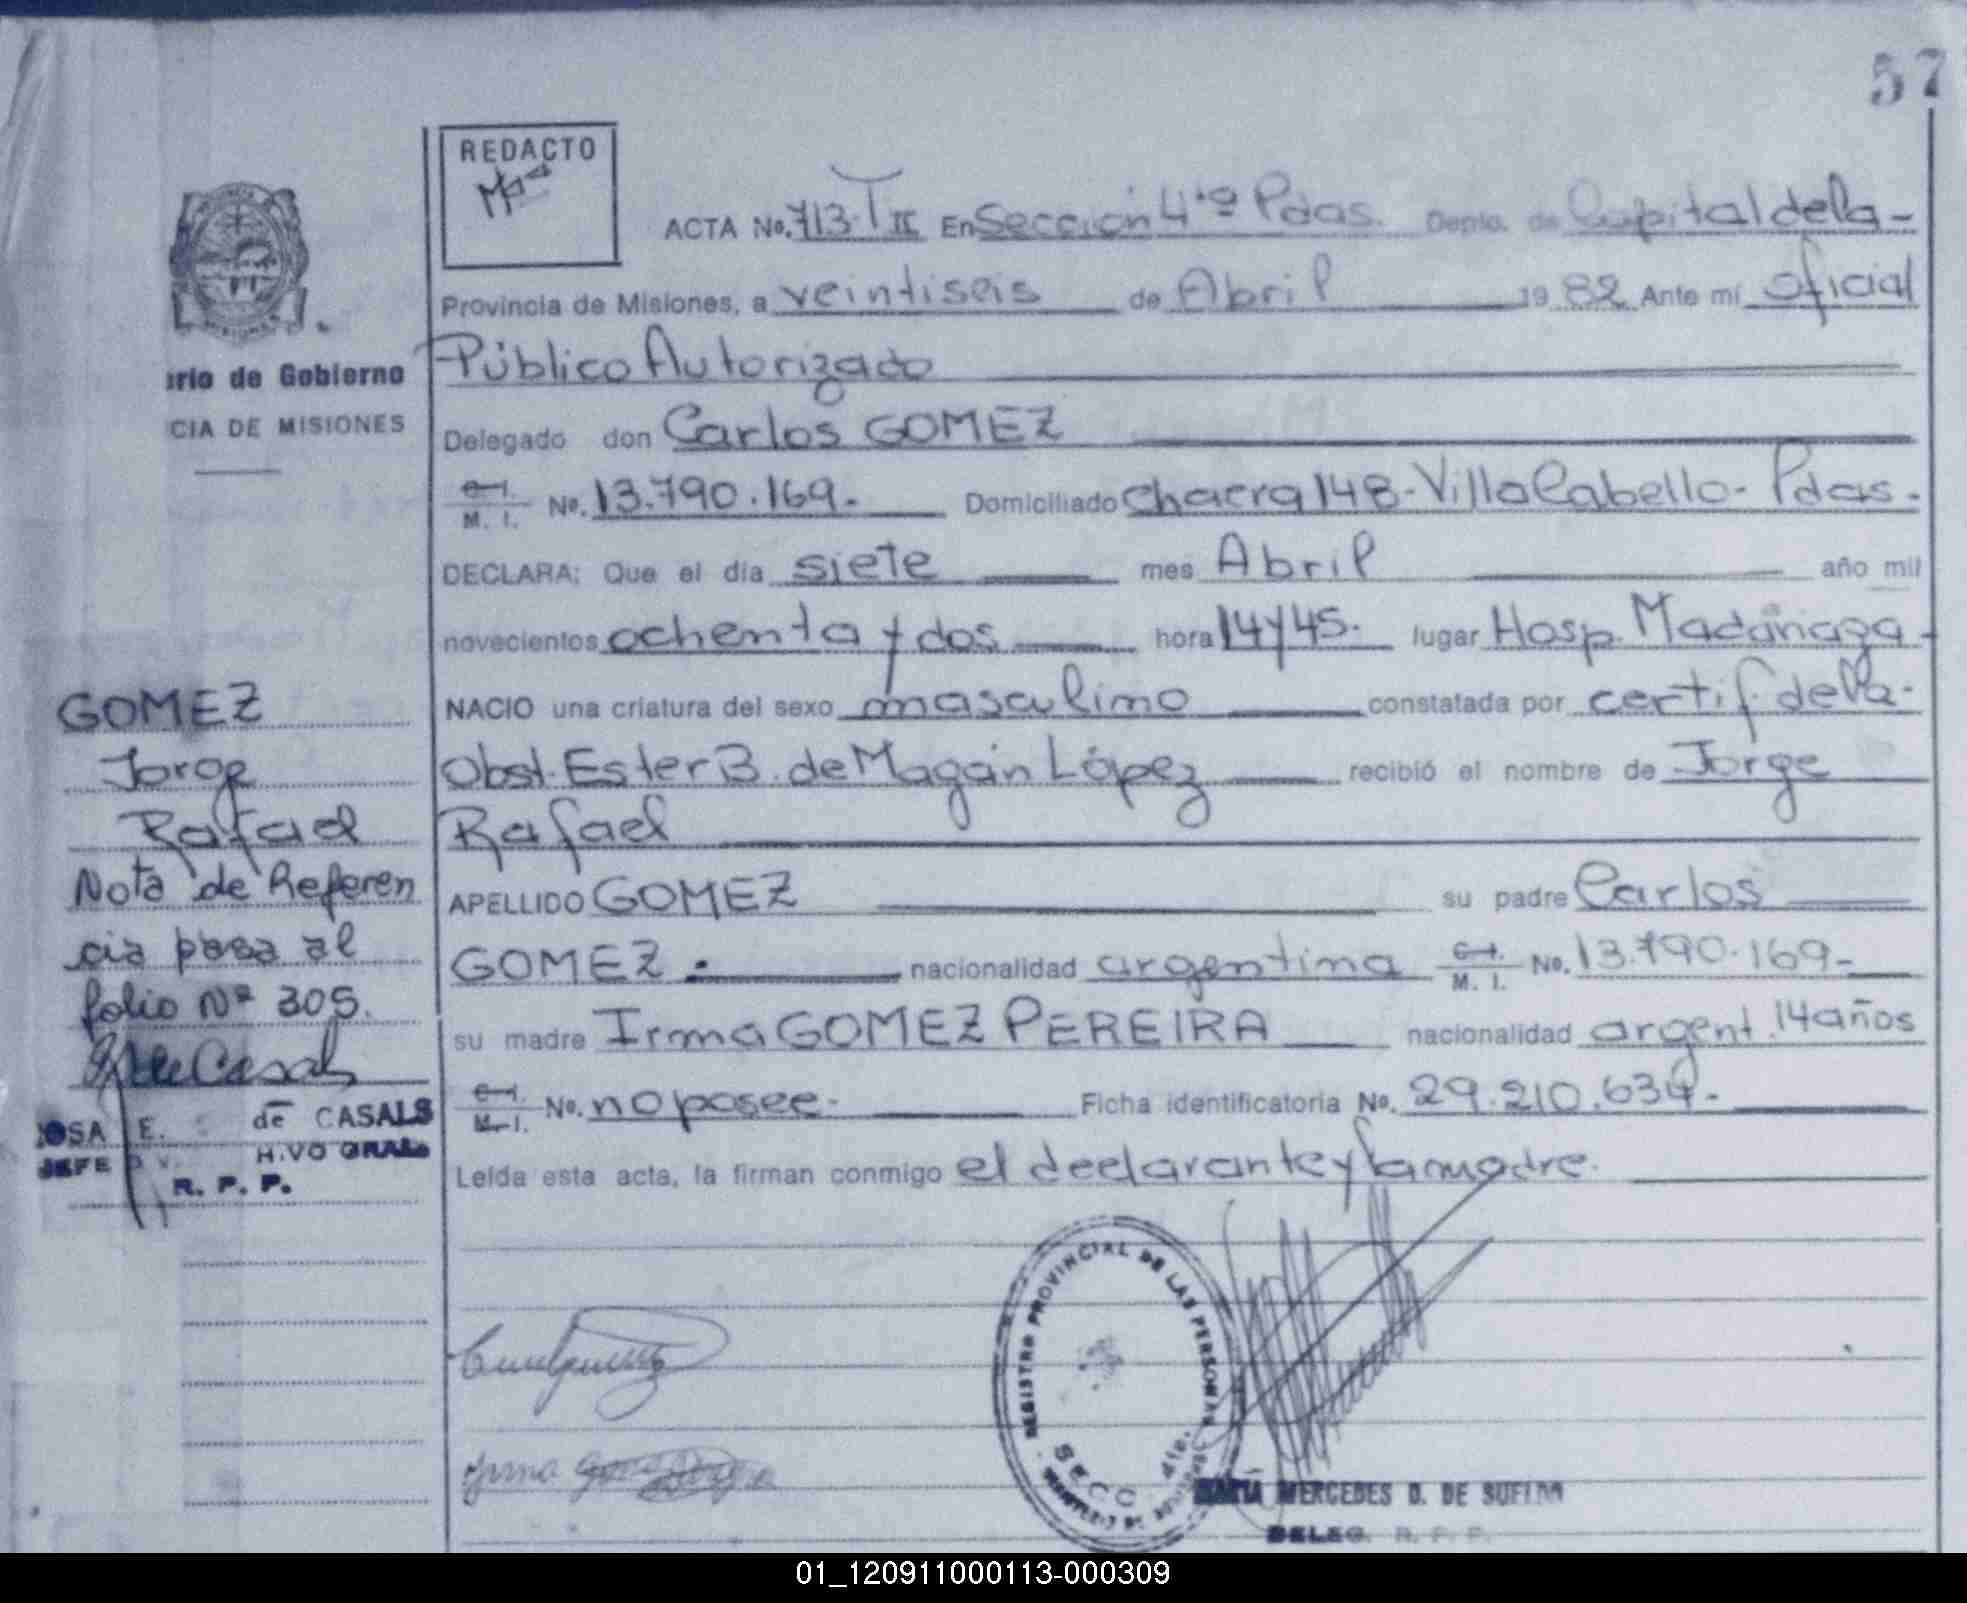 57
REDACTO
Mªª
ACTA No. 713-T II En Sección 4ta Pdas. Depto. de Capital de la-
Provincia de Misiones, a veintiseis de Abril 1982 Ante mí oficial
Público Autorizado
Delegado don Carlos GOMEZ
M. I. No. 13.790.169.- Domiciliado Chacra 148-Villa Cabello- Pdas.
DECLARA: Que el día siete mes Abril año mil
novecientos ochenta y dos hora 14y45. lugar Hosp. Madariaga-
NACIO una criatura del sexo masculino constatada por certif. de la-
Obst. Ester B. de Magán López recibió el nombre de Jorge
Rafael
APELLIDO GOMEZ su padre Carlos
GOMEZ nacionalidad argentina M. I. No. 13.790.169-
su madre Irma GOMEZ PEREIRA nacionalidad argent. 14 años
M. I. No. no posee- Ficha identificatoria No. 29.210.634.-
Leída esta acta, la firman conmigo el declarante y la madre.
rio de Gobierno
CIA DE MISIONES
GOMEZ
Jorge
Rafael
Nota de Referen
cia pasa al
folio Nº 305.
OSA E. de CASALS
JEFE H.VO GRAL.
R. P. P.
REGISTRO PROVINCIAL DE LAS PERSONAS
SECC
Irma
MARIA MERCEDES D. DE
DELEG. R. P. P.
01_120911000113-000309